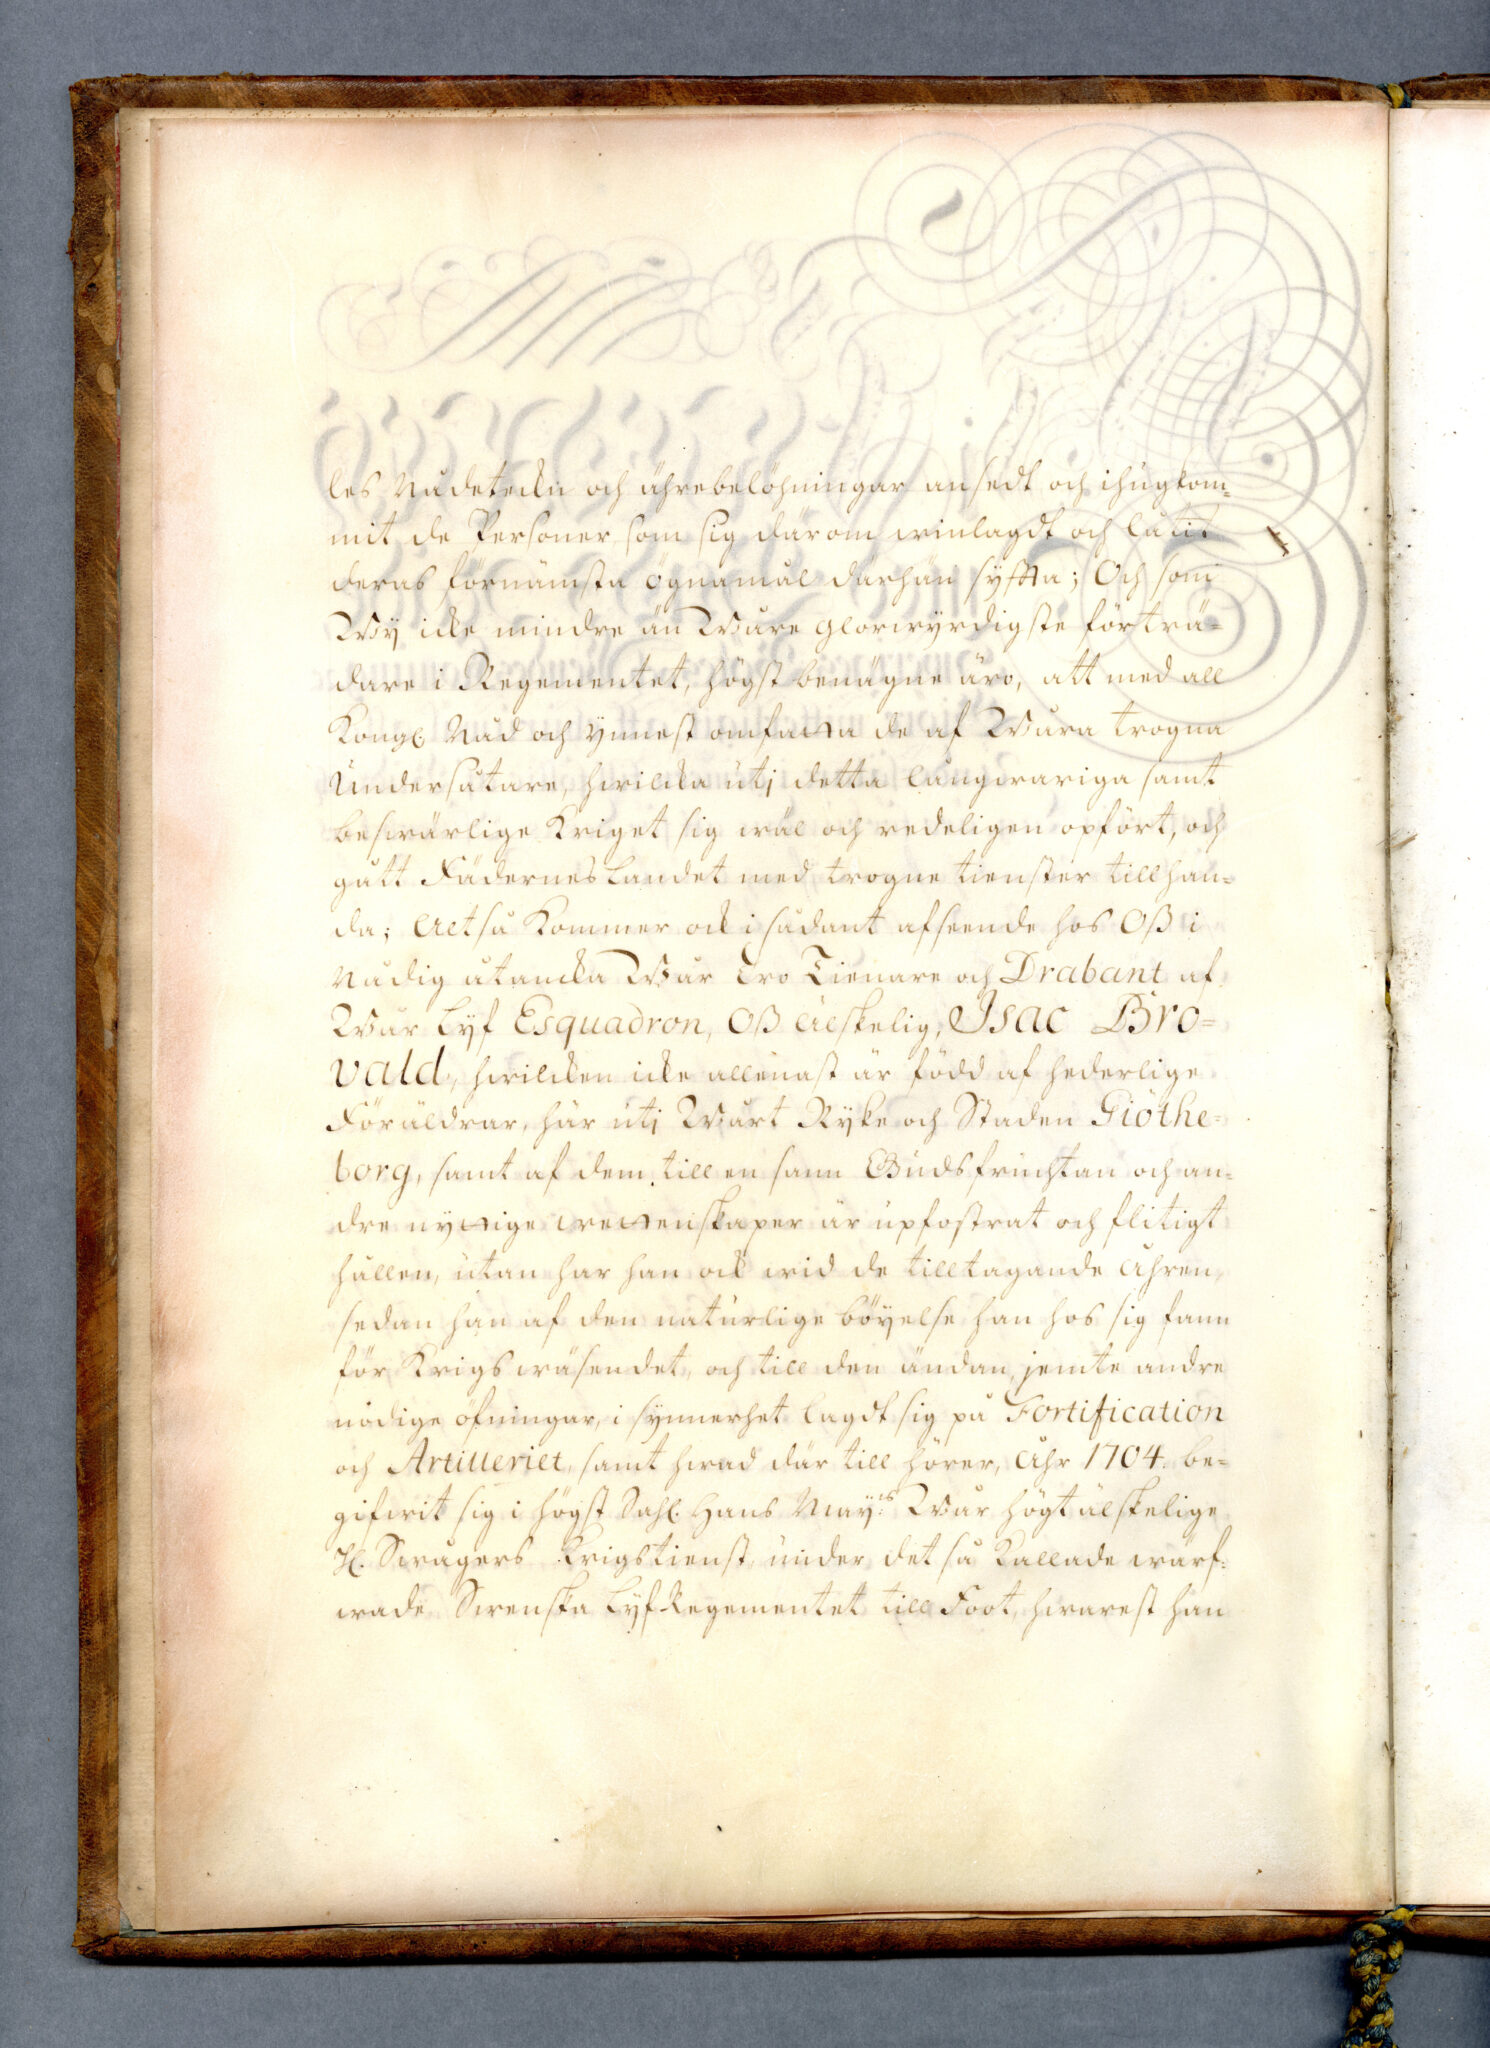 les Nådeteckn och ährebelöhningar ansedt och ihugkom-
mit de Personer som sig därom winlagdt och låtit
deras förnämsta ögnamål därhän syffta; Och som
Wy icke mindre än Wåre glorwyrdigste förträ-
dare i Regementet, högst benägne äro, att med all
Kongl. Nåd och ynnest omfatta de af Wåra trogna
Undersåtare, hwilcka utj detta långwariga samt
beswärlige Kriget sig wäl och redeligen opfört, och
gått Fäderneslandet med trogne tienster tillhan-
da; Altså kommer ock i sådant afseende hos Oß i
Nådig åtancka Wår Tro Tienare och Drabant af
Wår Lyf Esquadron, Oß älskelig, Isac Bro-
vald, hwilcken icke allenast är född af hederlige
Föräldrar, här utj Wårt Ryke och Staden Giöthe-
borg, samt af dem till en sann Gudsfruchtan och an-
dre nyttige wettenskaper är upfostrat och flitigt
hållen, utan har han ock wid de tilltagande Åhren,
sedan han af den naturlige böyelse han hos sig fann
för Krigswäsendet, och till den ändan, jemte andre
nödige öfningar, i synnerhet lagdt sig på Fortification
och Artilleriet, samt hwad där till hörer, Åhr 1704. be-
gifwit sig i högst Sahl. Hans May:ts Wår högt älskelige
H. Swågers Krigstienst, under det så kallade wärf-
wade Swenska Lyf-Regementet till Foot, hwarest han